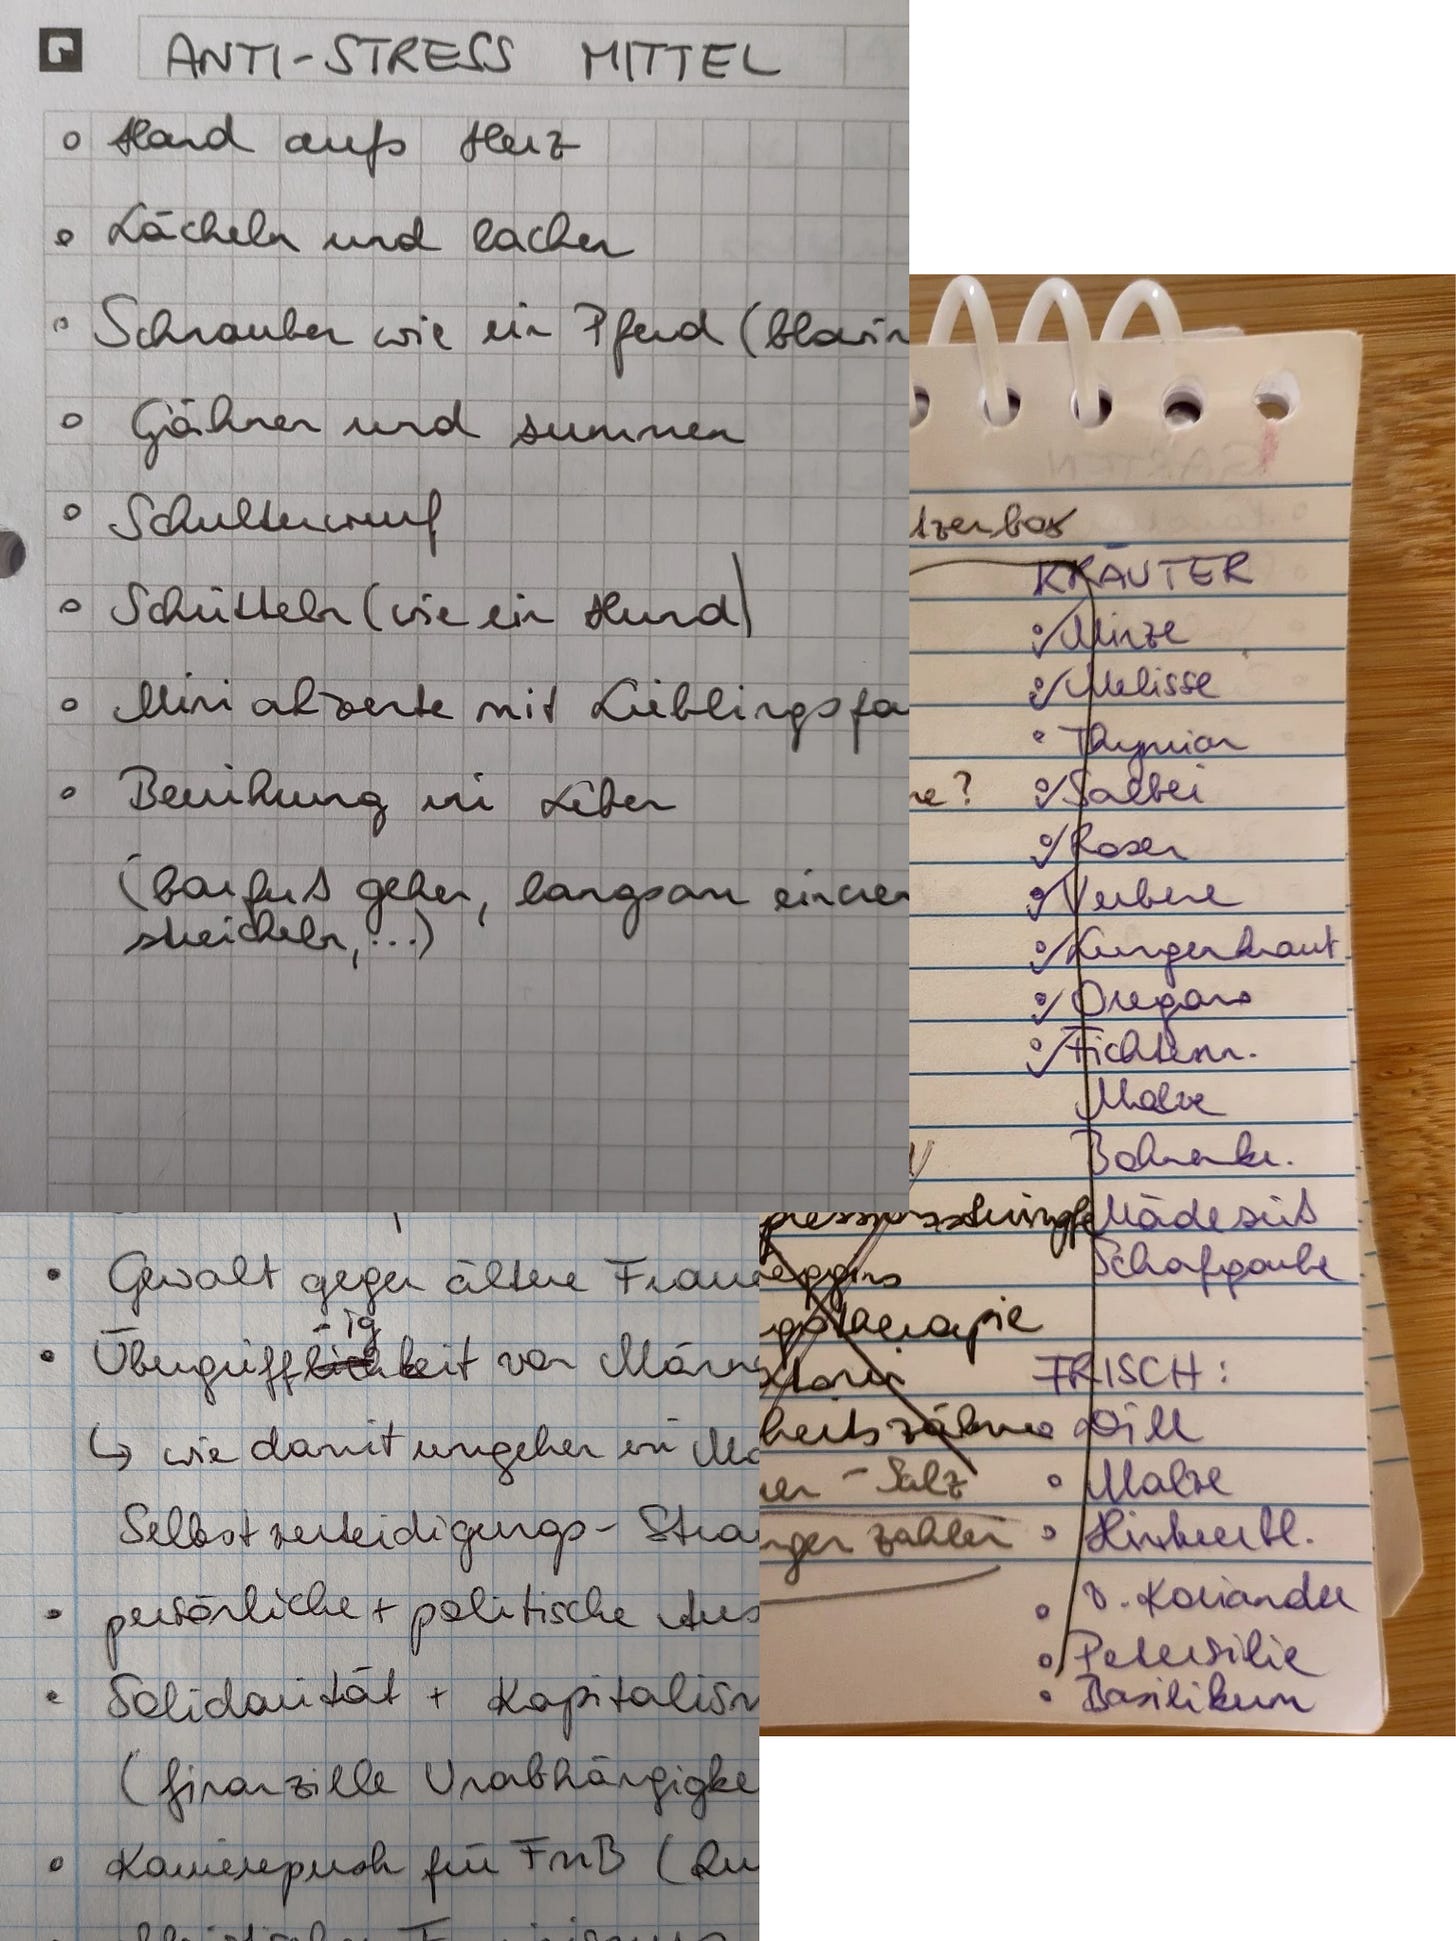 ANTI-STRESS MITTEL
Hand aufs Herz
Lächeln und lachen
Schnauben wie ein Pferd (
Gähnen und summen
Schulterwurf
Schütteln (wie ein Hund)
Mini mit Lieblingsfa
Berührung ins Leben
(barfuß gehen, langsam eincre
streicheln, ...)
tzenbox
KRÄUTER
Minze
Melisse
Thymian
ne? Salbei
Rosen
Verbene
Lungenkraut
Oregano
Fichtenn.
Malve
Bohnenkr.
Mädesüß
Schafgarbe
therapie
FRISCH:
Dill
- Salz
Malve
zahlen
Himbeerbl.
V. Koriander
Petersilie
Basilikum
Gewalt gegen ältere Fraue
-ig
Übergriff keit von Männe
↳ wie damit umgehen
Selbstverteidigungs- Stra
persönliche + politische Aus
Solidarität + Kapitalism
(finanzille Unabhängigke
Karrierepush für FnB (